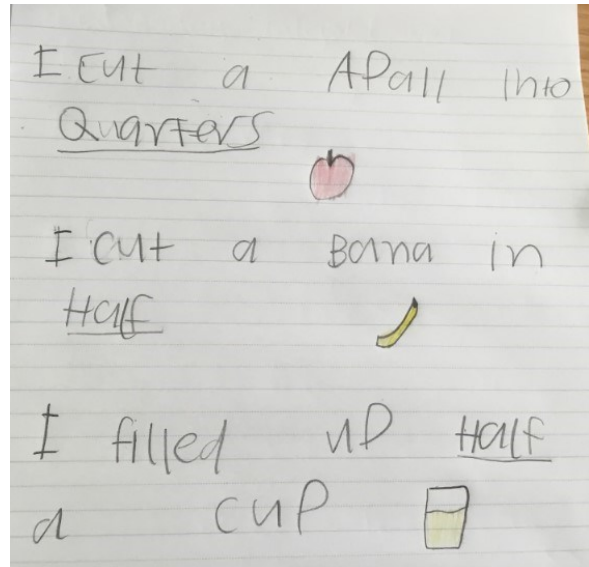 I cut a APall into
Quarters
I cut a Bana in
Half
I filled up Half
a cup